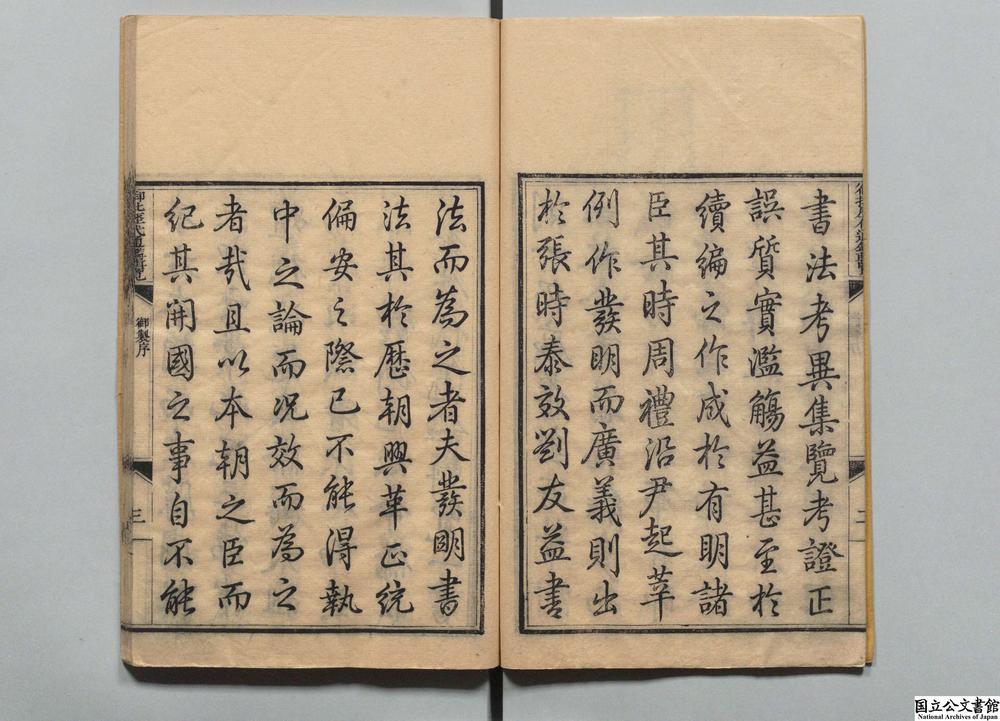 書法考異集覽考證正
誤質實濫觴益甚至於
續編之作成於有明諸
臣其時周禮沿尹起莘
例作發明而廣義則出
於張時泰效劉友益書
法而為之者夫發明書
法其於歷朝興革正統
偏安之際已不能得執
中之論而況效而為之
者哉且以本朝之臣而
紀其開國之事自不能
御批歷代通鑑輯覽
御製序
三
国立公文書館
National Archives of Japan